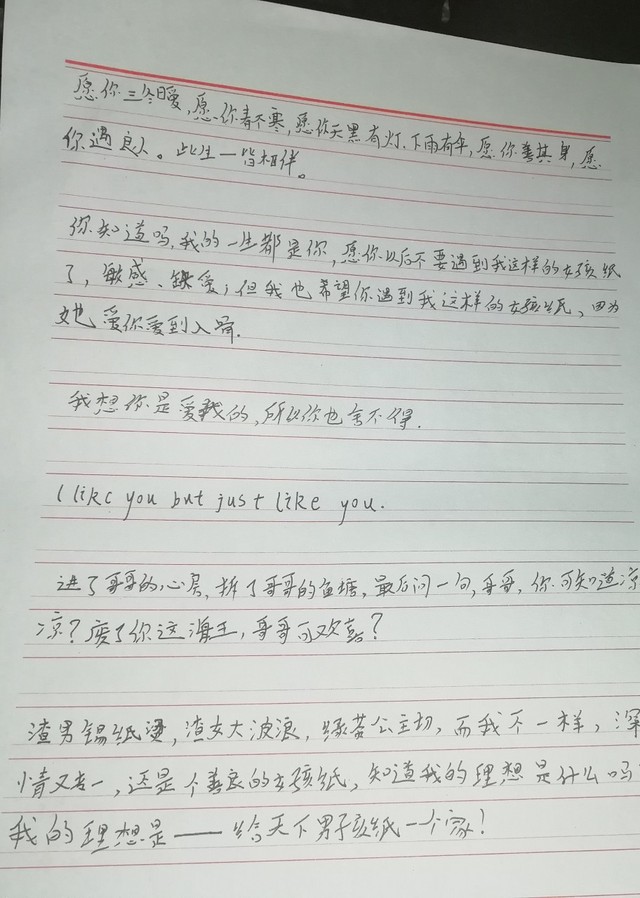 愿你三冬暖,愿你春不寒,愿你天黑有灯、下雨有伞,愿你善其身,愿
你遇良人。此生一皆相伴。
你知道吗,我的一生都是你,愿你以后不要遇到我这样的女孩纸
了,敏感、缺爱;但我也希望你遇到我这样的女孩纸、因为
她爱你爱到入骨.
我想你是爱我的,所以你也舍不得.
I like you but just like you.
进了哥哥的心房,拆了哥哥的鱼塘,最后问一句,哥哥,你可知道凉
凉?废了你这海王,哥哥可欢喜?
渣男锡纸烫,渣女大波浪,绿茶公主切,而我不一样,深
情又专一,还是个善良的女孩纸,知道我的理想是什么吗
我的理想是——给天下男孩纸一个家!